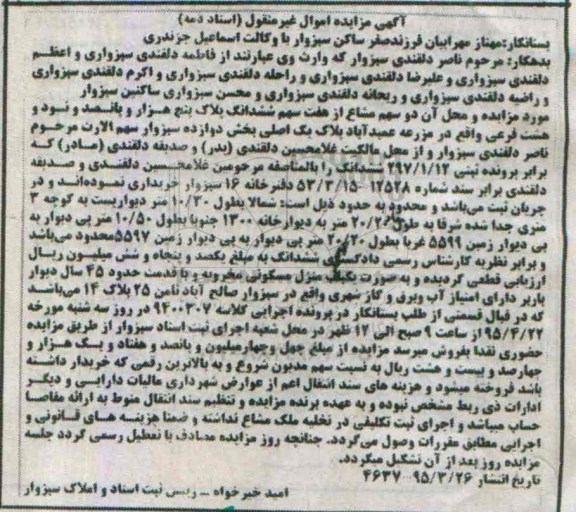 آگهی مزایده اموال غیرمنقول (اسناد ذمه)
بستانکار: مهناز مهرابیان فرزندصفر ساکن سبزوار با وکالت اسماعیل جزندری
بدهکار: مرحوم ناصر دلقندی سبزوار که وارث وی عبارتند از فاطمه دلقندی سبزواری و اعظم
دلقندی سبزواری و علیرضا دلقندی سبزواری و راحله دلقندی سبزواری و اکرم دلقندی سبزواری
و راضیه دلقندی سبزواری و ریحانه دلقندی سبزواری و محسن سبزواری ساکنین سبزوار
مورد مزایده و محل آن دو سهم مشاع از هفت سهم ششدانگ پلاک پنج هزار و پانصد و نود و
هشت فرعی واقع در مزرعه عمیدآباد پلاک یک اصلی بخش دوازده سبزوار سهم الارث مرحوم
ناصر دلقندی سبزوار و از محل مالکیت غلامحسین دلقندی (پدر) و صدیقه دلقندی (مادر) که
برابر پرونده ثبتی ۲۹۷/۱/۱۲ ششدانگ را بالمناصفه مرحومین غلامحسین دلقندی و صدیقه
دلقندی برابر سند شماره ۱۲۵۲۸ -۵۳/۳/۱۵ دفترخانه ۱۶ سبزوار خریداری نموده‌اند و در
جریان ثبت می‌باشد و محدود به حدود ذیل است: شمالا بطول ۱۰/۳۰ متر دیواریست به کوچه ۳
متری جدا شده شرقا به طول ۲۰/۲۰ متر به دیوار خانه ۱۳۰۰ جنوبا بطول ۱۰/۵۰ متر پی دیوار به
پی دیوار زمین ۵۵۹۹ غربا بطول ۲۰/۲۰ متر پی دیوار به پی دیوار زمین ۵۵۹۷محدود می‌باشد
و برابر نظریه کارشناس رسمی دادگستری ششدانگ به مبلغ یکصد و پنجاه و شش میلیون ریال
ارزیابی قطعی گردیده و به صورت یکباب منزل مسکونی مخروبه و با قدمت حدود ۴۵ سال دیوار
باربر دارای امتیاز آب وبرق و گاز شهری واقع در سبزوار صالح آباد ثامن ۲۵ پلاک ۱۴ می‌باشد
که در قبال قسمتی از طلب بستانکار در پرونده اجرایی کلاسه ۹۴۰۰۳۰۷ در روز سه شنبه مورخه
۹۵/۴/۲۲ از ساعت ۹ صبح الی ۱۲ ظهر در محل شعبه اجرای ثبت اسناد سبزوار از طریق مزایده
حضوری نقدا بفروش میرسد مزایده از مبلغ چهل وچهارمیلیون و پانصد و هفتاد و یک هزار و
چهارصد و بیست و هشت ریال به نسبت سهم مدیون شروع و به بالاترین رقمی که خریدار داشته
باشد فروخته میشود و هزینه های سند انتقال اعم از عوارض شهرداری مالیات دارایی و دیگر
ادارات ذی ربط مشخص نبوده و به عهده برنده مزایده و تنظیم سند انتقال منوط به ارائه مفاصا
حساب میباشد و اجرای ثبت تکلیفی در تخلیه ملک مشاع نداشته و ضمنا هزینه های قانونی و
اجرایی مطابق مقررات وصول می‌گردد. چنانچه روز مزایده مصادف با تعطیل رسمی گردد جلسه
مزایده روز بعد از آن تشکیل میگردد.
تاریخ انتشار ۹۵/۳/۲۶ ۴۶۳۷
امید خیرخواه _ رییس ثبت اسناد و املاک سبزوار